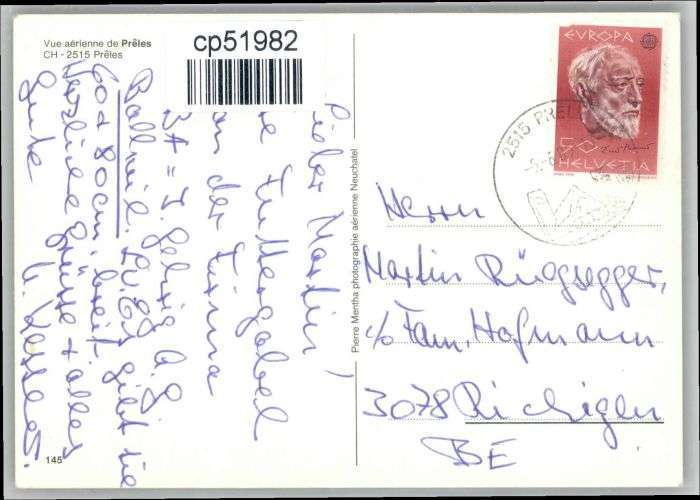 Vue aérienne de Prêles
CH - 2515 Prêles
cp51982
Lieber Martin!
von der Firma
BA = J. Gehrig A.G.
Ballwil. LU. Es gibt sie
60 + 80 cm. breit.
Herzliche Grüsse + alles
Gute
145
Pierre Mentha photographie aérienne Neuchatel
EUROPA
50
HELVETIA
2515 PRÊL
Herrn
Martin Rüegsegger,
c/o Fam. Hofmann
3078 Richigen
BE